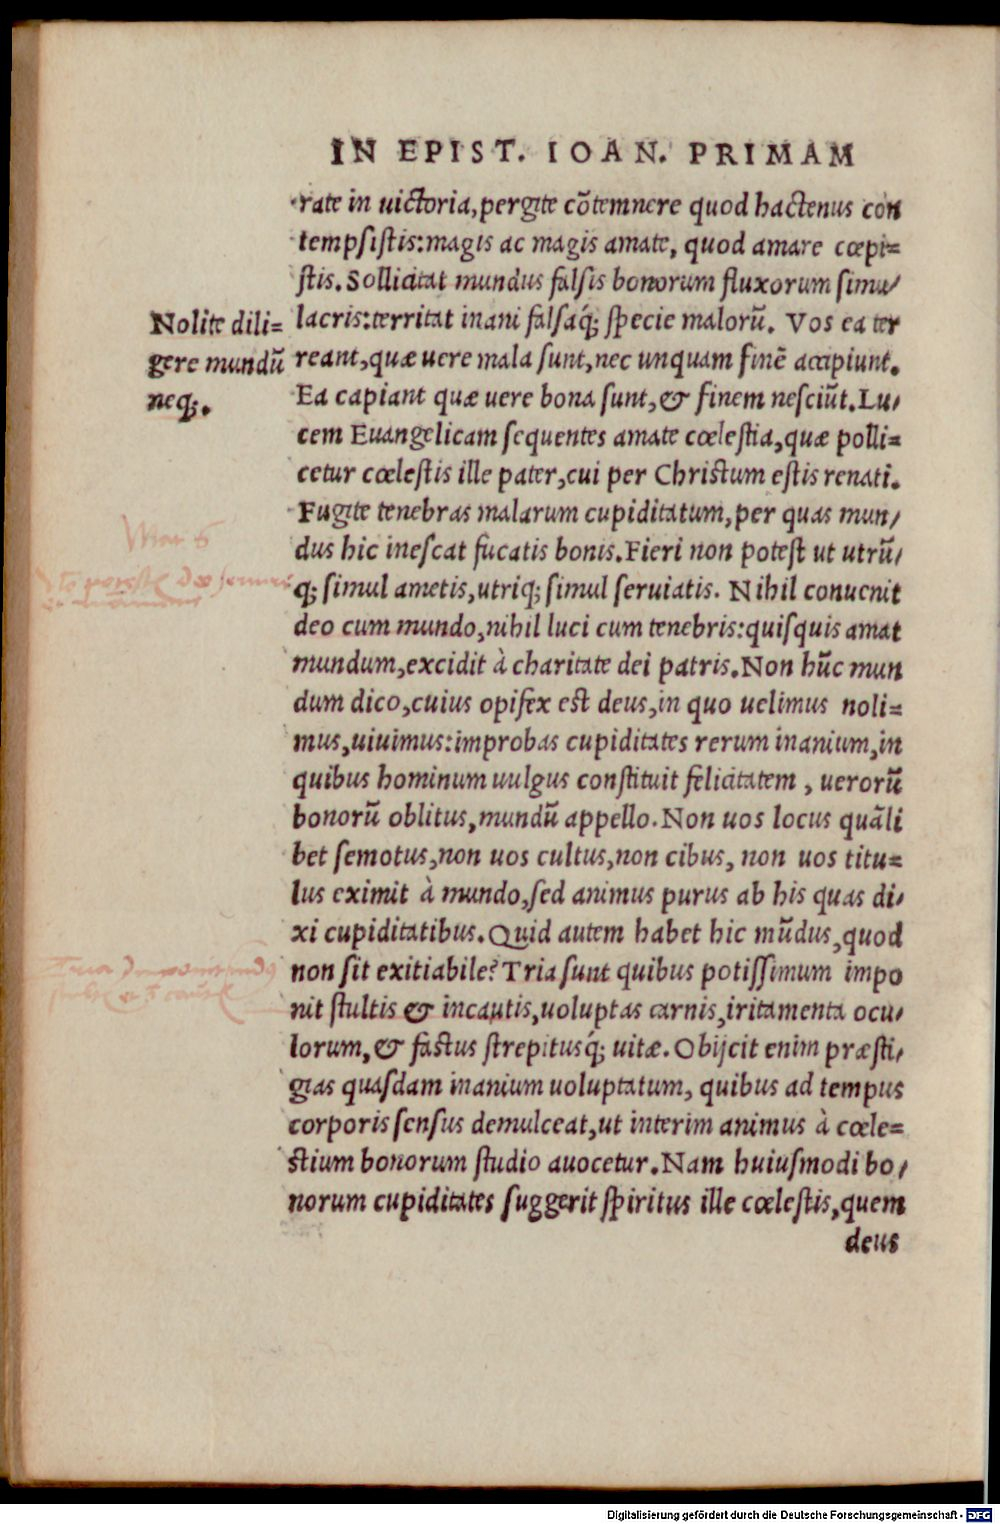 IN EPIST. IOAN. PRIMAM
rate in uictoria, pergite cõtemnere quod hactenus con
tempsistis: magis ac magis amate, quod amare cœpi=
stis. Sollicitat mundus falsis bonorum fluxorum simu/
lacris: territat inani falsaq́; specie malorũ. Vos ea ter
reant, quæ uere mala sunt, nec unquam finẽ accipiunt.
Ea capiant quæ uere bona sunt, & finem nesciũt. Lu/
cem Euangelicam sequentes amate cœlestia, quæ polli=
cetur cœlestis ille pater, cui per Christum estis renati.
Fugite tenebras malarum cupiditatum, per quas mun/
dus hic inescat fucatis bonis. Fieri non potest ut utrũ/
q; simul ametis, utriq; simul seruiatis. Nihil conuenit
deo cum mundo, nihil luci cum tenebris: quisquis amat
mundum, excidit à charitate dei patris. Non hũc mun
dum dico, cuius opifex est deus, in quo uelimus noli=
mus, uiuimus: improbas cupiditates rerum inanium, in
quibus hominum uulgus constituit felicitatem, uerorũ
bonorũ oblitus, mundũ appello. Non uos locus quãli
bet semotus, non uos cultus, non cibus, non uos titu=
lus eximit à mundo, sed animus purus ab his quas di/
xi cupiditatibus. Quid autem habet hic mũdus, quod
non sit exitiabile? Tria sunt quibus potissimum impo
nit stultis & incautis, uoluptas carnis, iritamenta ocu/
lorum, & fastus strepitusq́; uitæ. Obijcit enim præsti/
gias quasdam inanium uoluptatum, quibus ad tempus
corporis sensus demulceat, ut interim animus à cœle=
stium bonorum studio auocetur. Nam huiusmodi bo/
norum cupiditates suggerit spiritus ille cœlestis, quem
deus
Nolite dili=
gere mundũ
neq;.
Digitalisierung gefördert durch die Deutsche Forschungsgemeinschaft - DFG